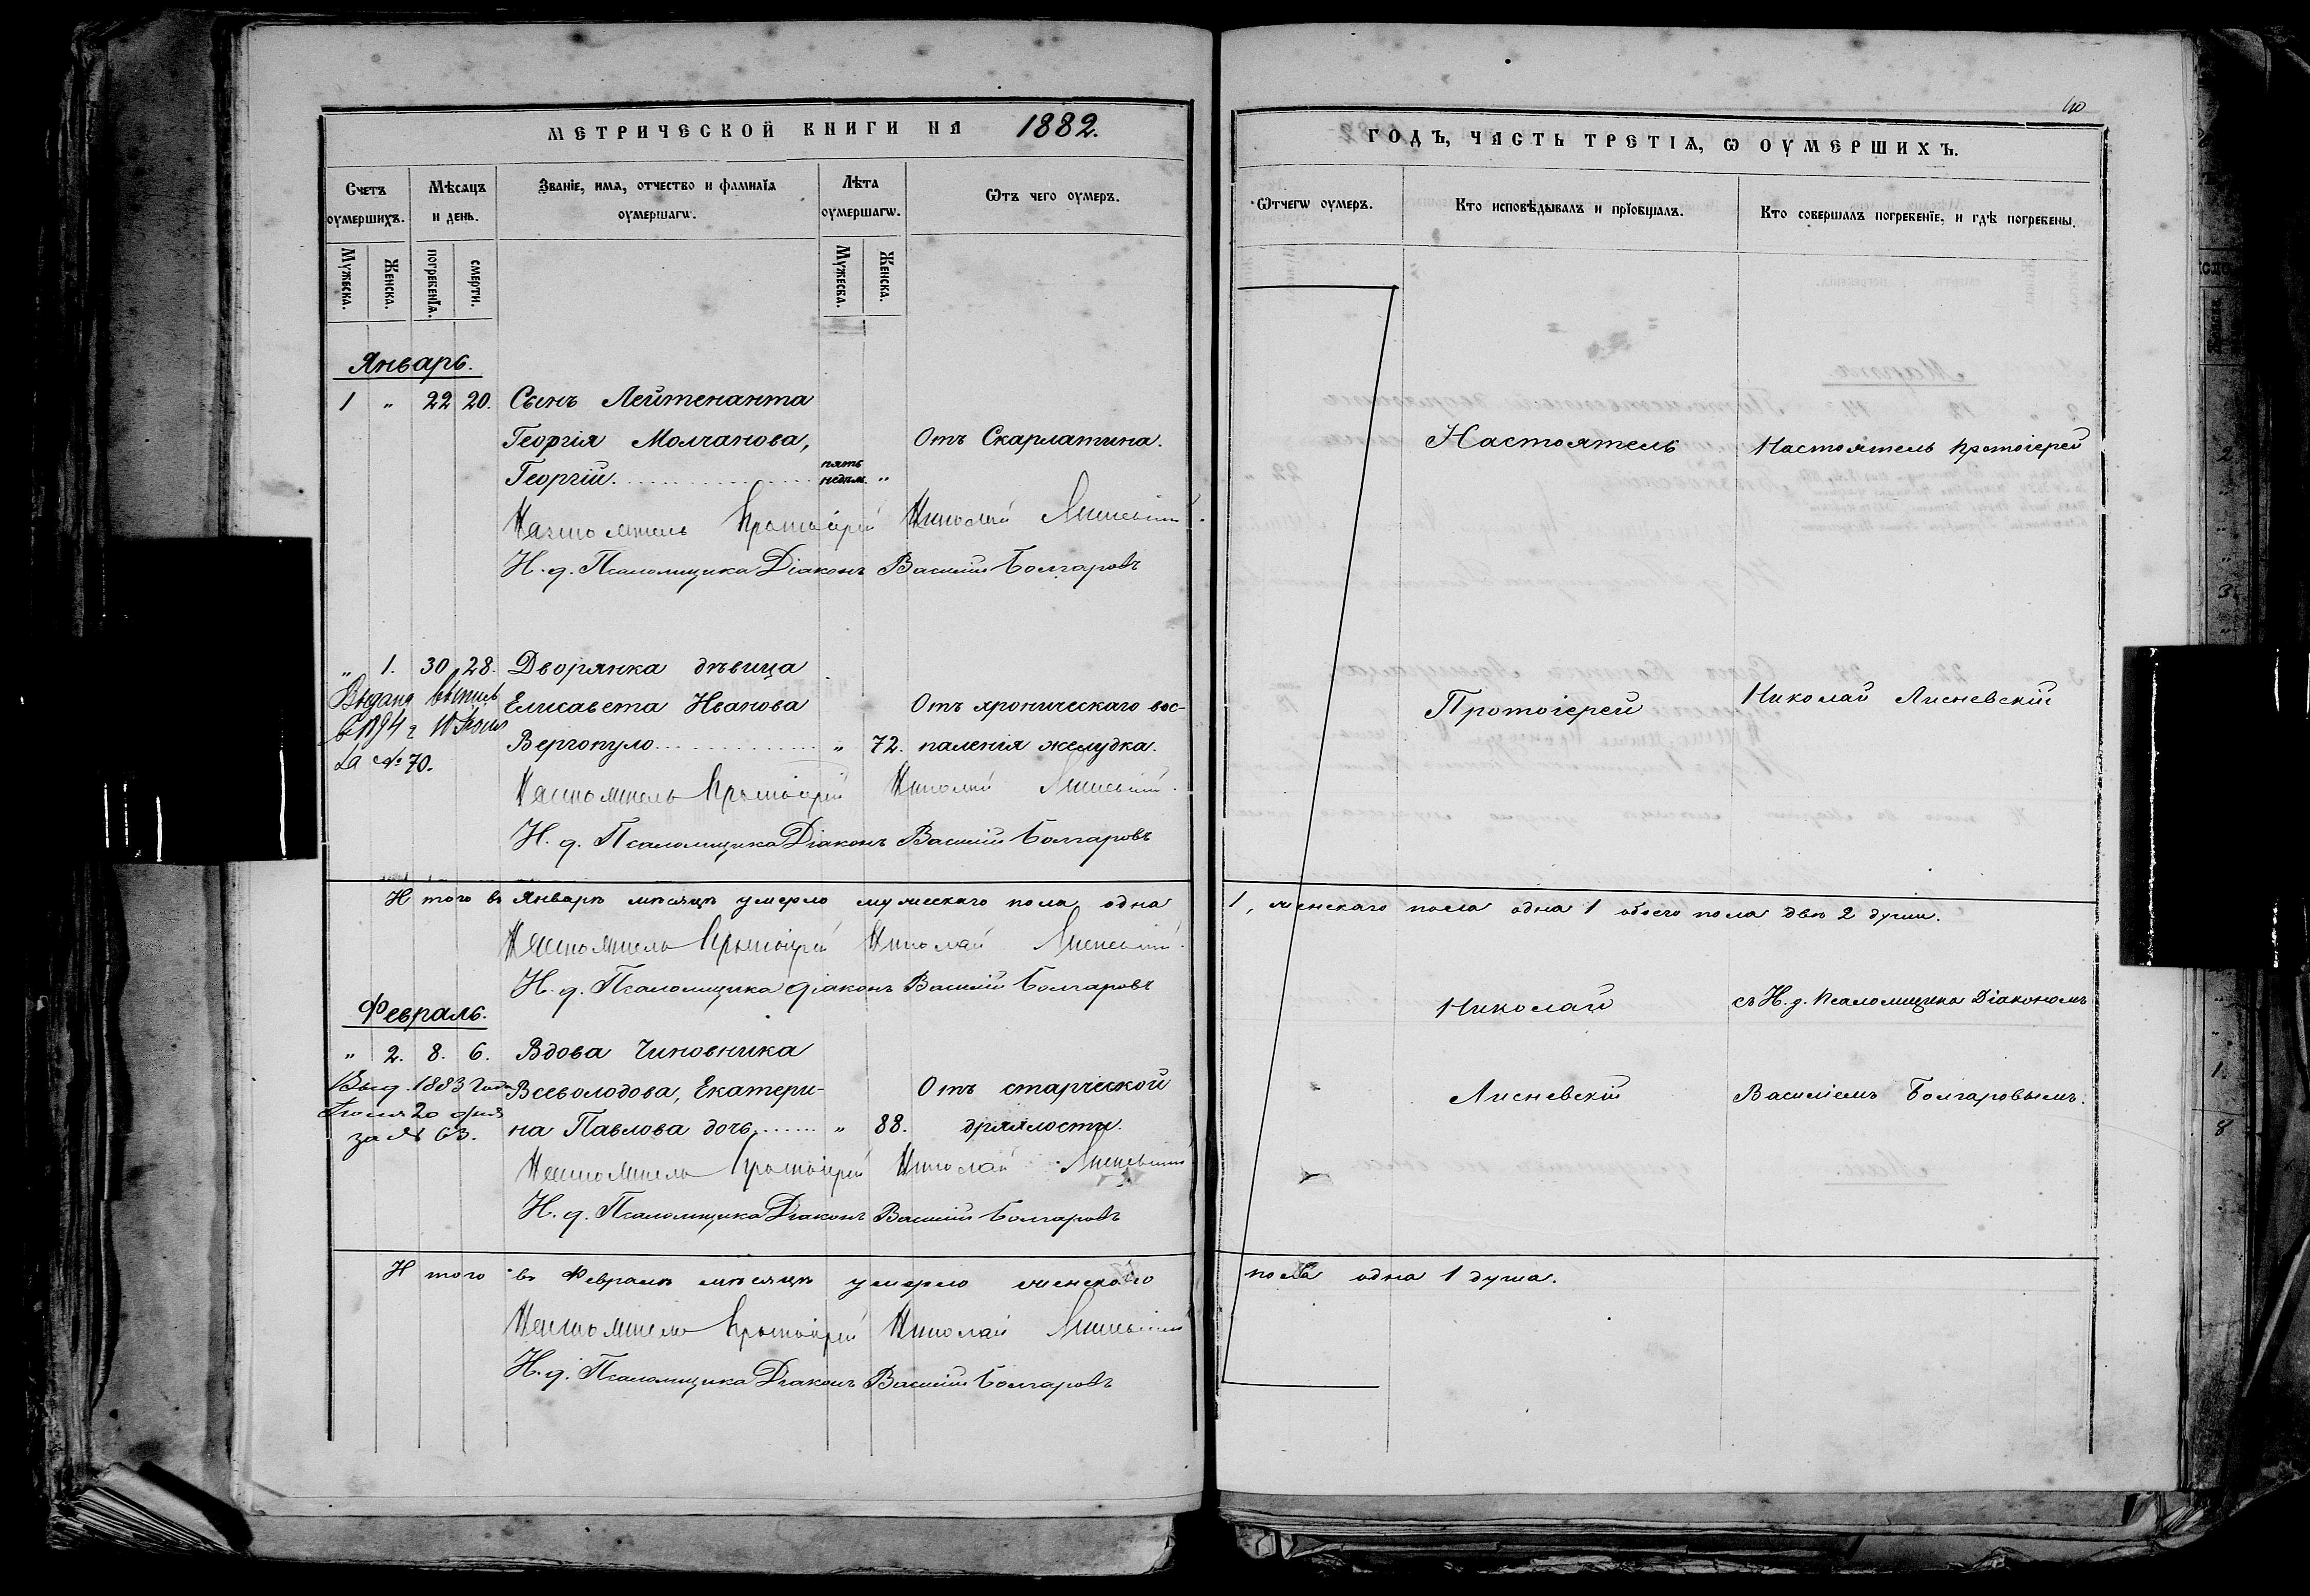 МЕТРИЧЕСКОЙ КНИГИ НА 1882.
Счетъ оумершихъ.
Мѣсяцъ и день.
Званіе, имя, отчество и фамилія оумершагѡ.
Лѣта оумершагѡ.
Ѿтъ чего оумеръ.
Мужеска.
Женска.
погребенія.
смерти.
Мужеска.
Женска.
Январь.
1 " 22 20. Сынъ Лейтенанта
Георгія Молчанова, Отъ Скарлатина.
Георгій. пять недѣл. "
Настоятель Протоіерей Николай Лисневскій.
И. д. Псаломщика Діаконъ Василій Болгаровъ
" 1. 30 28. Дворянка дѣвица
Выдана выпись Елисавета Иванова Отъ хроническаго вос-
в 1894 г. Вергопуло " 72. паленія желудка.
за № 70.
Настоятель Протоіерей Николай Лисневскій.
И. д. Псаломщика Діаконъ Василій Болгаровъ
И того въ Январѣ мѣсяцѣ умерло мужескаго пола одна
Настоятель Протоіерей Николай Лисневскій.
И. д. Псаломщика діаконъ Василій Болгаровъ
Февраль.
" 2. 8. 6. Вдова Чиновника
Выд. 1883 года Всеволодова, Екатери- Отъ старческой
20 дня на Павлова дочь " 88. дряхлости.
за № 63.
Настоятель Протоіерей Николай Лисневскій
И. д. Псаломщика Діаконъ Василій Болгаровъ
И того въ Февралѣ мѣсяцѣ умерло женскаго
Настоятель Протоіерей Николай Лисневскій
И. д. Псаломщика Діаконъ Василій Болгаровъ
ГОДЪ, ЧАСТЬ ТРЕТІЯ, Ѡ ОУМЕРШИХЪ.
Ѿтчегѡ оумеръ.
Кто исповѣдывалъ и пріобщалъ.
Кто совершалъ погребеніе, и гдѣ погребены.
Настоятель Настоятель Протоіерей
Протоіерей Николай Лисневскій
1, женскаго пола одна 1 обоего пола двѣ 2 души.
Николай съ И. д. Псаломщика Діакономъ
Лисневскій Василіемъ Болгаровымъ.
пола одна 1 душа.